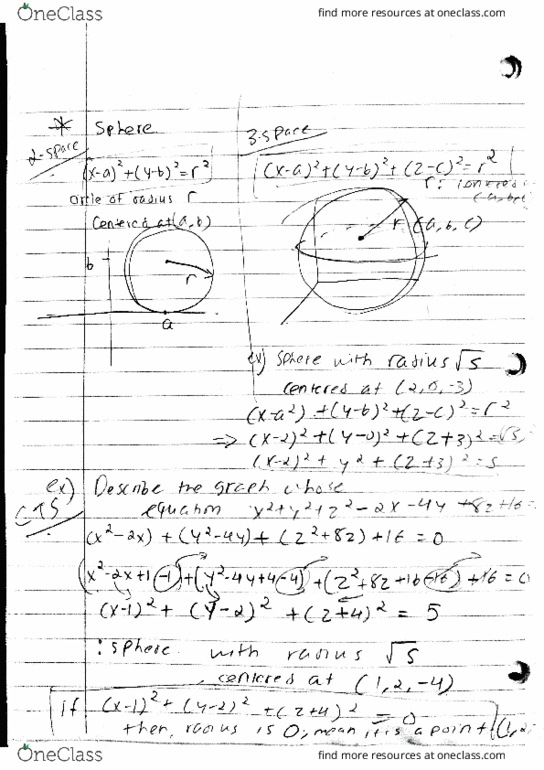 OneClass
find more resources at oneclass.com
* Sphere
2-space
3-space
(x-a)²+(y-b)²=r²
(x-a)²+(y-b)²+(z-c)²=r²
circle of radius r
r:
centered at (a,b)
r (a,b,c)
b
r
a
ex) sphere with radius √5
centered at (2,0,-3)
(x-a²)+(y-b)²+(z-c)²=r²
=> (x-2)²+(y-0)²+(z+3)²=√5
(x-2)²+y²+(z+3)²=5
ex) Describe the graph whose
CTS
equation x²+y²+z²-2x-4y+8z+16=
(x²-2x)+(y²-4y)+(z²+8z)+16=0
(x²-2x+1-1)+(y²-4y+4-4)+(z²+8z+16-16)+16=0
(x-1)²+(y-2)²+(z+4)²=5
: sphere with radius √5
centered at (1,2,-4)
if (x-1)²+(y-2)²+(z+4)²=0
then, radius is 0, mean it is a point (1,2
OneClass
find more resources at oneclass.com